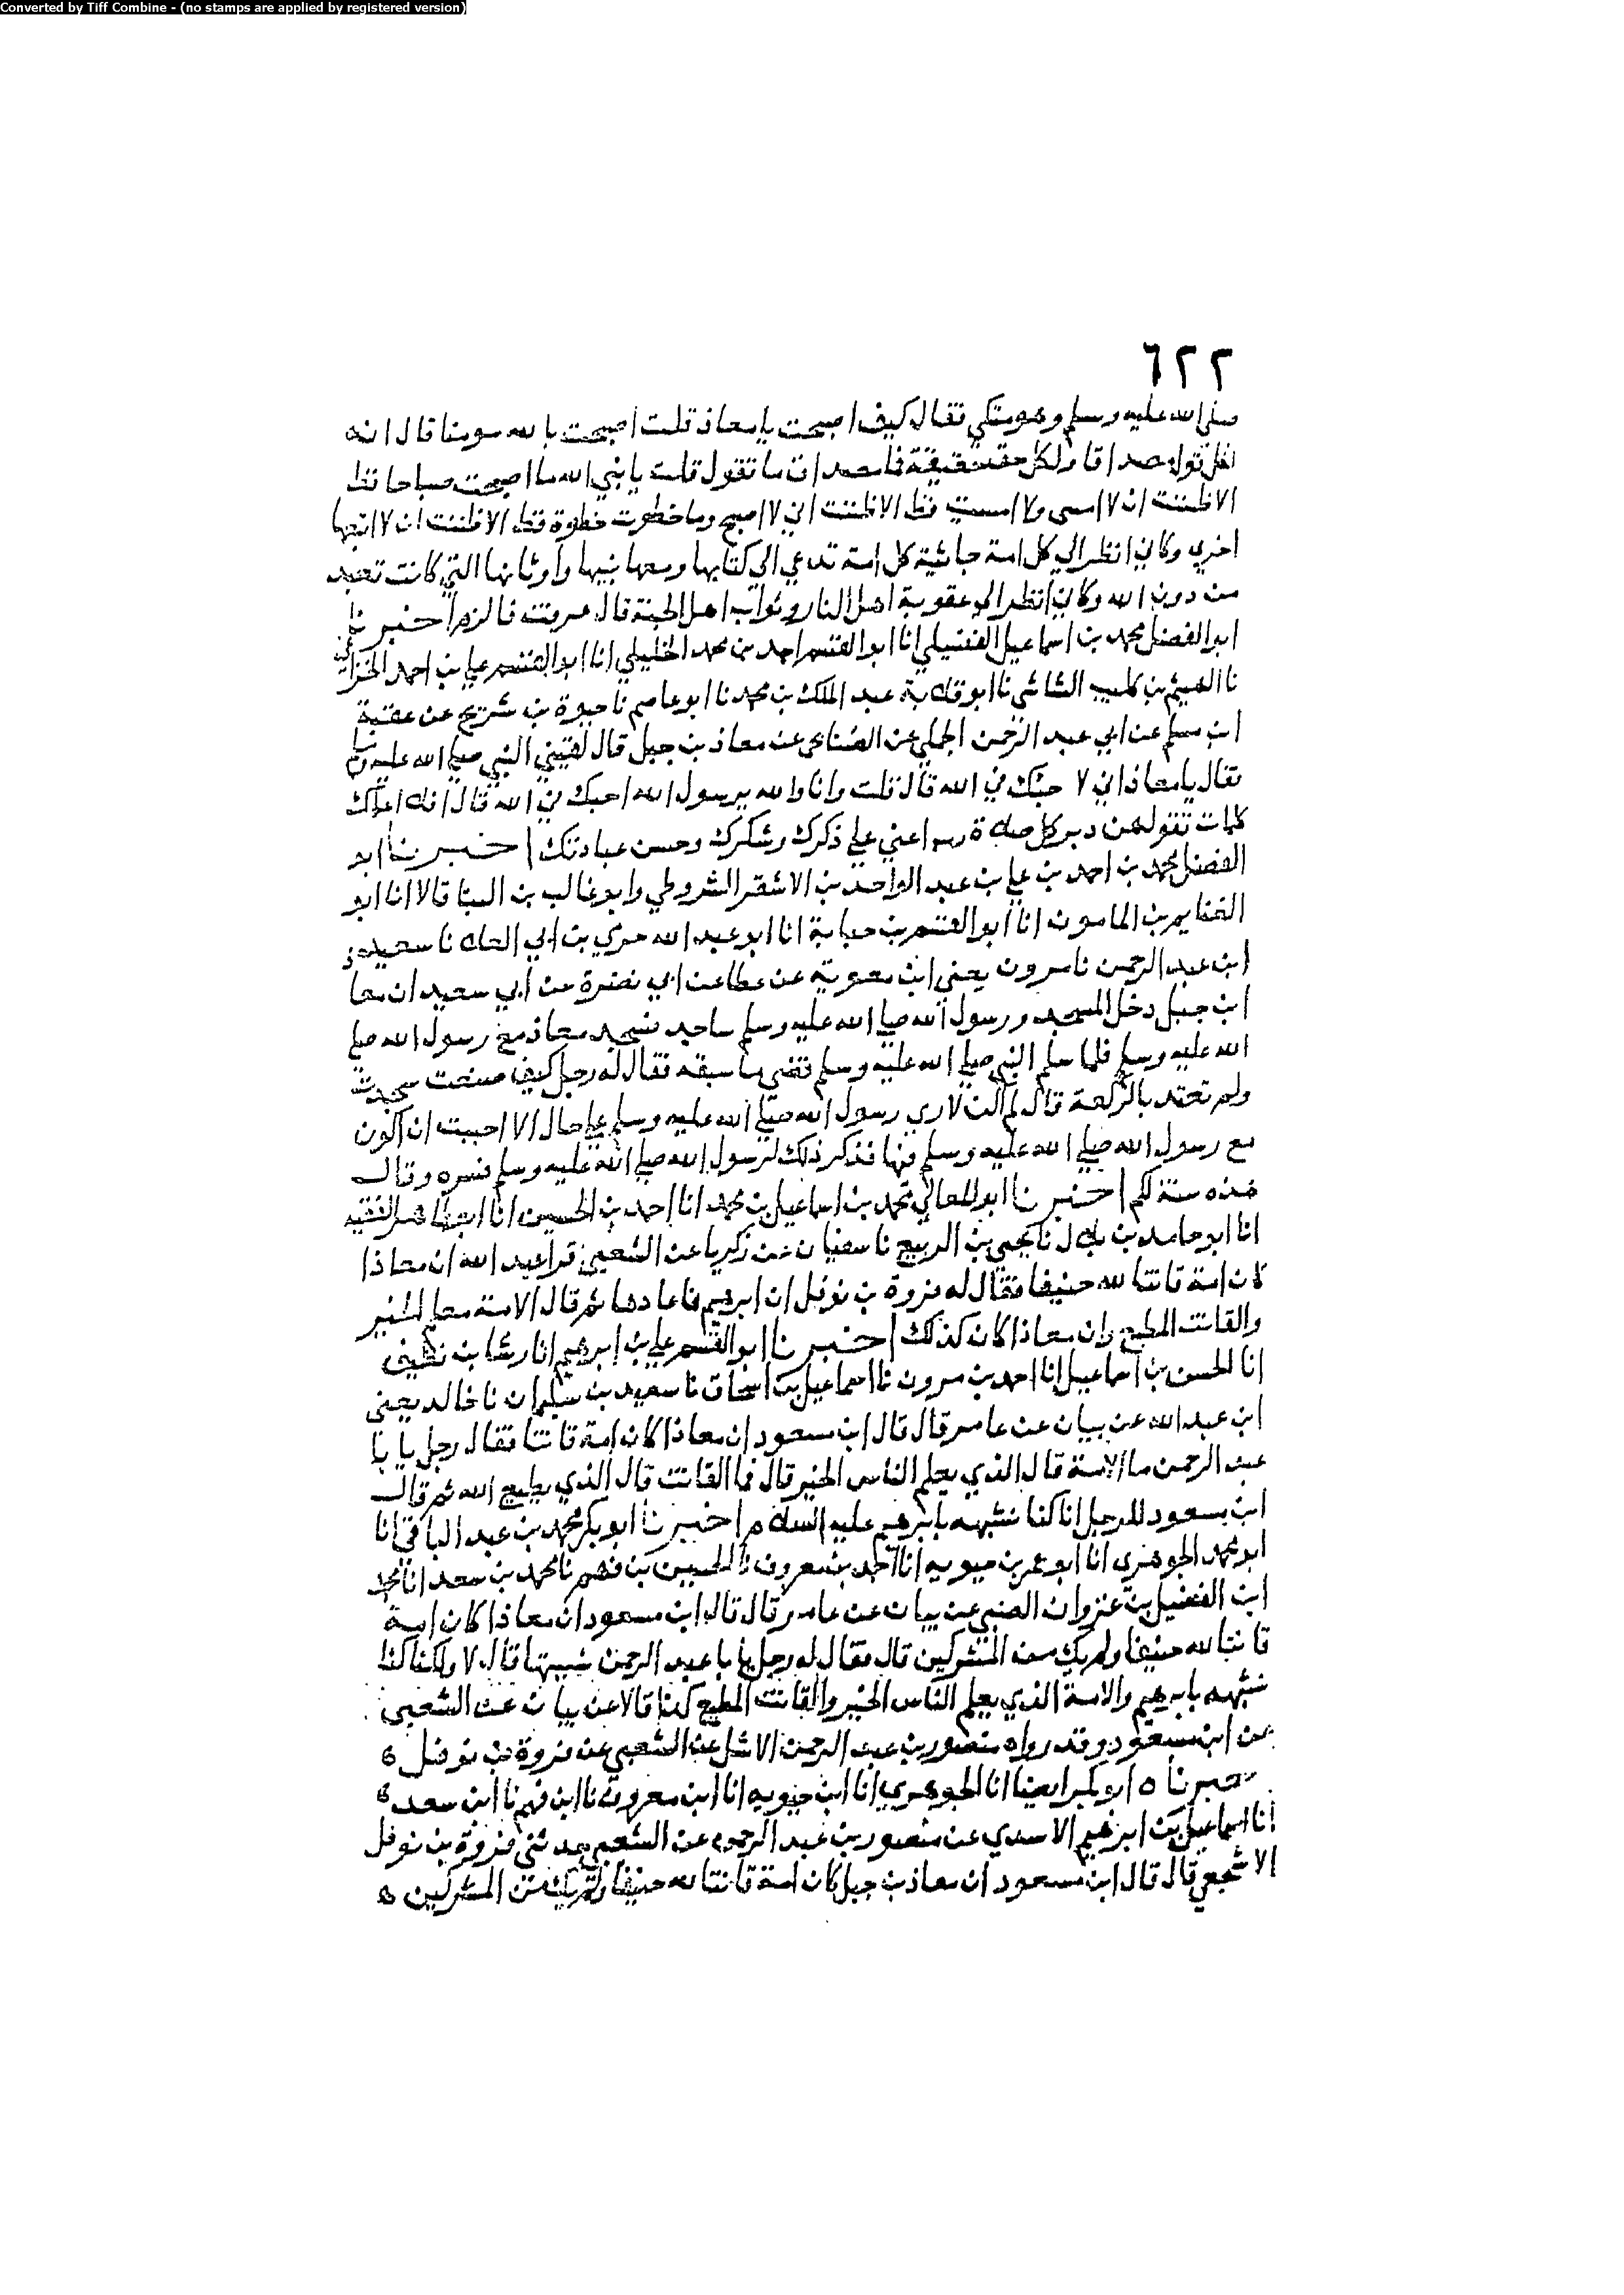 Converted by Tiff Combine - (no stamps are applied by registered version)
٦٢٢
صلى الله عليه وسلم وهو متكي فقال كيف اصبحت يا معاذ قلت اصبحت بالله مومنا قال انه
لكل قول مصداقا ولكل حق حقيقة فما مصداق ما تقول قلت يا نبي الله ما اصبحت صباحا قط
الا ظننت ان لا امسى ولا امسيت قط الا ظننت اني لا اصبح وما خطوت خطوة قط الا ظننت ان لا اتبعها
اخري وكاني انظر الي كل امة جاثية كل امة تدعي الي كتابها ومعها نبيها واوثانها التي كانت تعبد
من دون الله وكاني انظر الي عقوبة اهل النار وثواب اهل الجنة قال عرفت فالزم اخبرنا
ابو الفضل محمد بن اسماعيل الفضيلي انا ابو القسم احمد بن محمد الخليلي انا ابو القسم علي بن احمد الخزاعي
نا الهيثم بن كليب الشاشي نا ابو قلابة عبد الملك بن محمد نا ابو عاصم نا حيوة بن شريح عن عقبة
ابن مسلم عن ابي عبد الرحمن الحبلي عن الصنابحي عن معاذ بن جبل قال لقيني النبي صلي الله عليه وسلم
فقال يا معاذ اني لاحبك في الله قال قلت وانا والله يرسول الله احبك في الله قال افلا اعلمك
كلمات تقولهن دبر كل صلاة رب اعني علي ذكرك وشكرك وحسن عبادتك اخبرنا ابو
الفضل محمد بن احمد بن علي بن عبد الواحد بن الاشقر الشروطي وابو غالب بن البنا قالا انا ابو
الغنايم بن المامون انا ابو القسم بن حبابة انا ابو عبد الله حرمي بن ابي العلاء نا سعيد
ابن عبد الرحمن نا مرون يعني ابن معوية عن عطا عن ابي نضرة عن ابي سعيد ان معا
ابن جبل دخل المسجد ورسول الله صلي الله عليه وسلم ساجد فسجد معاذ مع رسول الله صلي
الله عليه وسلم فلما سلم النبي صلي الله عليه وسلم قضي ما سبقه فقال له رجل كيف صنعت سجدت
ولم تعتد بالركعة قال لم اكن لاري رسول الله صلي الله عليه وسلم علي حال الا احببت ان اكون
مع رسول الله صلي الله عليه وسلم فيها فذكر ذلك لرسول الله صلي الله عليه وسلم فسره وقال
هذه سنة لكم اخبرنا ابو المعالي محمد بن اسماعيل بن محمد انا احمد بن الحسين انا ابو طاهر الفقيه
انا ابو حامد بن بلال نا يحيى بن الربيع نا سفيان عن زكريا عن الشعبي قرا عبد الله ان معاذا
كان امة قانتا لله حنيفا فقال له فروة بن نوفل ان ابرهيم فاعادها ثم قال الامة معلم الخير
والقانت المطيع وان معاذا كان كذلك اخبرنا ابو القسم علي بن ابرهيم انا رشا بن نظيف
انا الحسن بن اسماعيل انا احمد بن مرون نا اسماعيل بن اسحاق نا سعيد بن سليمان نا خالد يعني
ابن عبد الله عن بيان عن عامر قال قال ابن مسعود ان معاذا كان امة قانتا فقال رجل يا با
عبد الرحمن ما الامة قال الذي يعلم الناس الخير قال فما القانت قال الذي يطيع الله ثم قال
ابن مسعود للرجل انا كنا نشبهه بابرهيم عليه السلام اخبرنا ابو بكر محمد بن عبد الباقي انا
ابو محمد الجوهري انا ابو عمر بن حيويه انا احمد بن معروف نا الحسين بن فهم نا محمد بن سعد انا محمد
ابن الفضيل بن غزوان الضبي عن بيان عن عامر قال قال ابن مسعود ان معاذا كان امة
قانتا لله حنيفا ولم يك من المشركين قال فقال له رجل يا با عبد الرحمن نسيتها قال لا ولكنا كنا
نشبهه بابرهيم والامة الذي يعلم الناس الخير والقانت المطيع كذا قالا عن بيان عن الشعبي
عن ابن مسعود وقد رواه منصور بن عبد الرحمن الاشل عن الشعبي عن فروة بن نوفل ه
خبرنا ه ابو بكر ايضا انا الجوهري انا ابن حيويه انا ابن معروف نا ابن فهم نا ابن سعد ه
انا اسماعيل بن ابرهيم الاسدي عن منصور بن عبد الرحمن عن الشعبي حدثني فروة بن نوفل
الاشجعي قال قال ابن مسعود ان معاذ بن جبل كان امة قانتا لله حنيفا ولم يك من المشركين ه